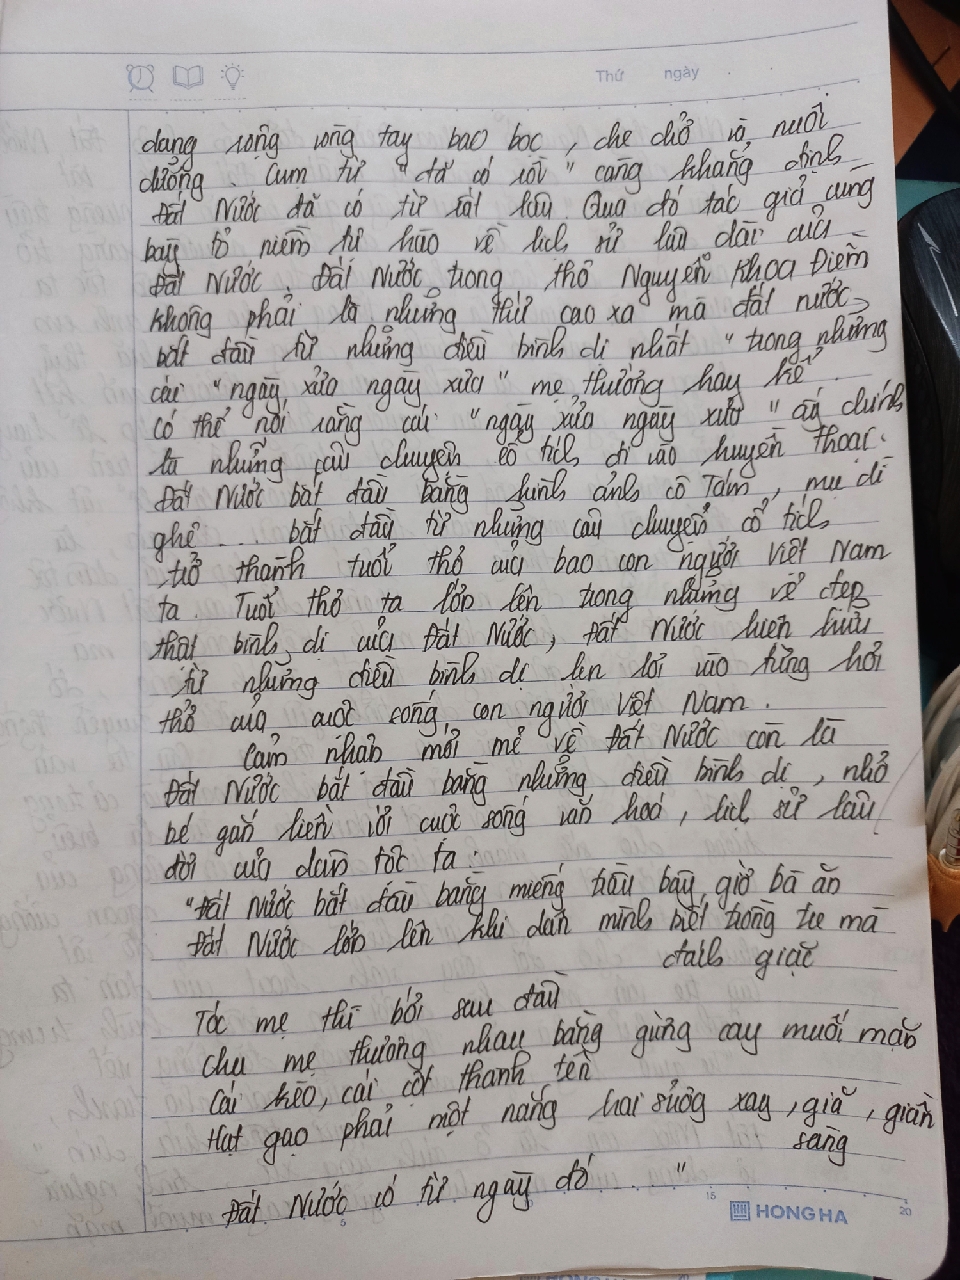 Thứ ngày
dang rộng vòng tay bao bọc, che chở và nuôi
dưỡng. Cụm từ "đã có rồi" càng khẳng định
Đất Nước đã có từ rất lâu. Qua đó tác giả cũng
bày tỏ niềm tự hào về lịch sử lâu dài của
Đất Nước. Đất Nước trong thơ Nguyễn Khoa Điềm
không phải là những thứ cao xa mà đất nước
bắt đầu từ những điều bình dị nhất "trong những
cái "ngày xửa ngày xưa" mẹ thường hay kể
có thể nói rằng cái "ngày xửa ngày xưa" ấy chính
là những câu chuyện cổ tích đi vào huyền thoại.
Đất Nước bắt đầu bằng hình ảnh cô Tấm, mụ dì
ghẻ ... bắt đầu từ những câu chuyện cổ tích
trở thành tuổi thơ của bao con người Việt Nam
ta. Tuổi thơ ta lớn lên trong những vẻ đẹp
thật bình dị của Đất Nước, Đất Nước hiện hữu
từ những điều bình dị len lỏi vào từng hơi
thở của cuộc sống con người Việt Nam.
Cảm nhận mới mẻ về Đất Nước còn là
Đất Nước bắt đầu bằng những điều bình dị, nhỏ
bé gắn liền với cuộc sống văn hoá, lịch sử lâu
đời của dân tộc ta:
"Đất Nước bắt đầu bằng miếng trầu bây giờ bà ăn
Đất Nước lớn lên khi dân mình biết trồng tre mà
đánh giặc
Tóc mẹ thì bới sau đầu
Cha mẹ thương nhau bằng gừng cay muối mặn
Cái kèo, cái cột thành tên
Hạt gạo phải một nắng hai sương xay, giã, giần
sàng
Đất Nước có từ ngày đó..."
5 15 20
HONG HA